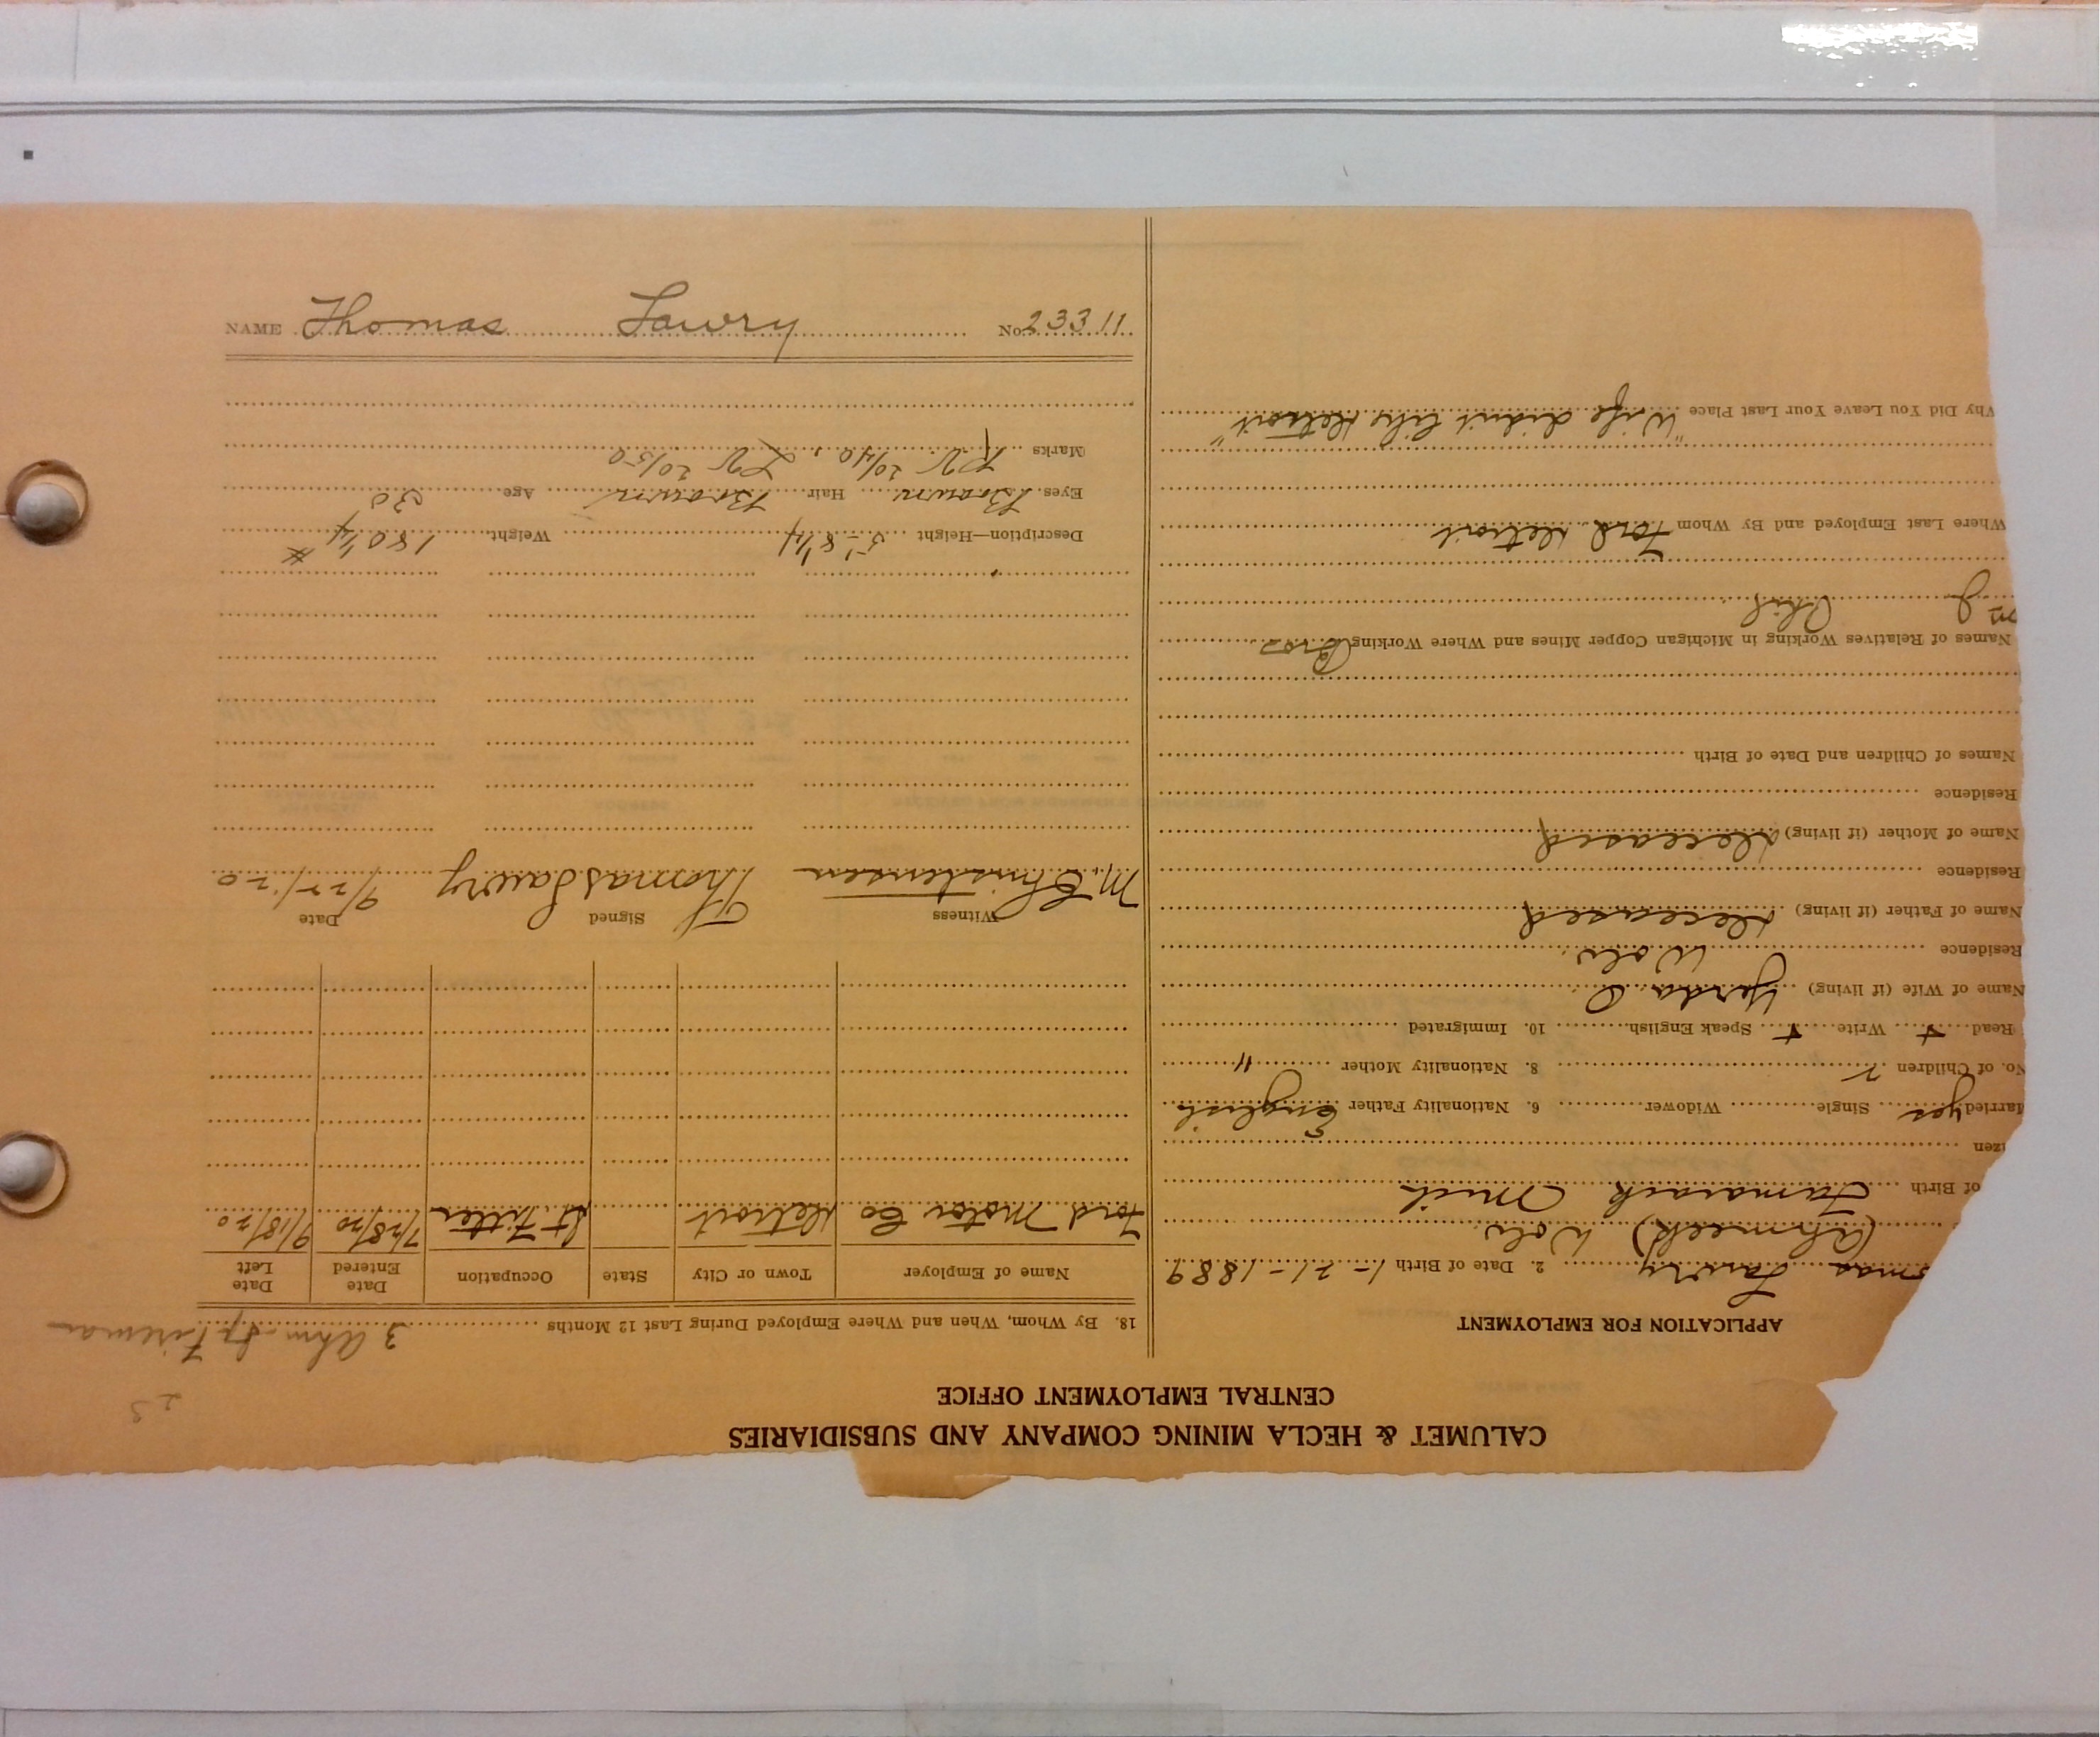 CALUMET & HECLA MINING COMPANY AND SUBSIDIARIES
CENTRAL EMPLOYMENT OFFICE
23
APPLICATION FOR EMPLOYMENT
mas Lawry 2. Date of Birth 1-21-1889
(Ahmeek) Wolv.
of Birth Tamarack Mich
izen
Married yes Single Widower 6. Nationality Father English
No. of Children 2 8. Nationality Mother "
Read + Write + Speak English 10. Immigrated
Name of Wife (if living) Gerda O
Residence Wolv.
Name of Father (if living) deceased
Residence
Name of Mother (if living) deceased
Residence
Names of Children and Date of Birth
Names of Relatives Working in Michigan Copper Mines and Where Working Bros
Phil
Where Last Employed and By Whom Ford Detroit
Why Did You Leave Your Last Place "Wife didn't like Detroit"
3 Ahm Fireman
18. By Whom, When and Where Employed During Last 12 Months
Name of Employer Town or City State Occupation Date Entered Date Left
Ford Motor Co Detroit St Fitter 7/28/20 9/18/20
Witness Signed Date
M. Christensen Thomas Lawry 9/22/20
Description—Height 5'-8 1/4 Weight 180 1/4 #
Eyes Brown Hair Brown Age 30
Marks RV 20/40, LV 20/50
NAME Thomas Lawry No. 23311